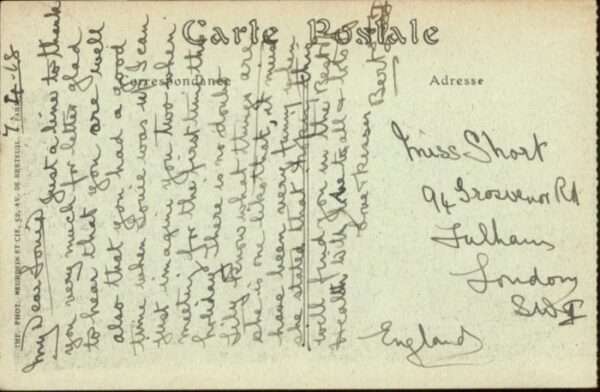 Carte Postale
Correspondance
Adresse
7-4-18
My Dear Louie Just a line to thank
you very much for letter glad
to hear that you are well
also that you had a good
time when Louie was up I can
just imagine you two when
meeting for the first time this
holiday. There is no doubt
Lily know what things are
she is one like that, it must
have been very trying when
she stated that Hoping this
will find you in the Best of
Health with Love to all & lots
Love Kisses Bert
Miss Short
94 Grosvenor Rd
Fulham
London
SW
England
IMP. PHOT. NEURDEIN ET CIE, 52, AV. DE BRETEUIL, PARIS